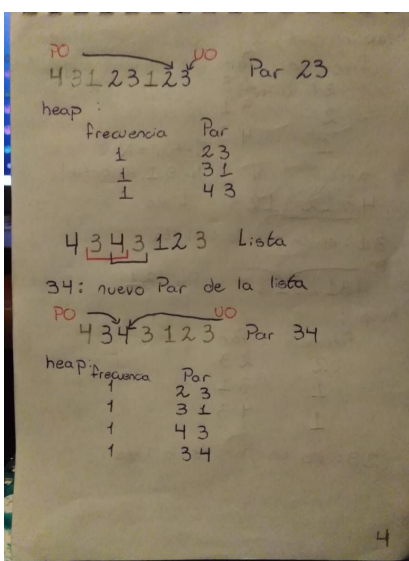 PO UO
4 3 1 2 3 1 2 3 Par 23
heap :
frecuencia Par
1 2 3
1 3 1
1 4 3
4 3 4 3 1 2 3 Lista
34: nuevo Par de la lista
PO UO
4 3 4 3 1 2 3 Par 34
heap: frecuenca Par
1 2 3
1 3 1
1 4 3
1 3 4
4